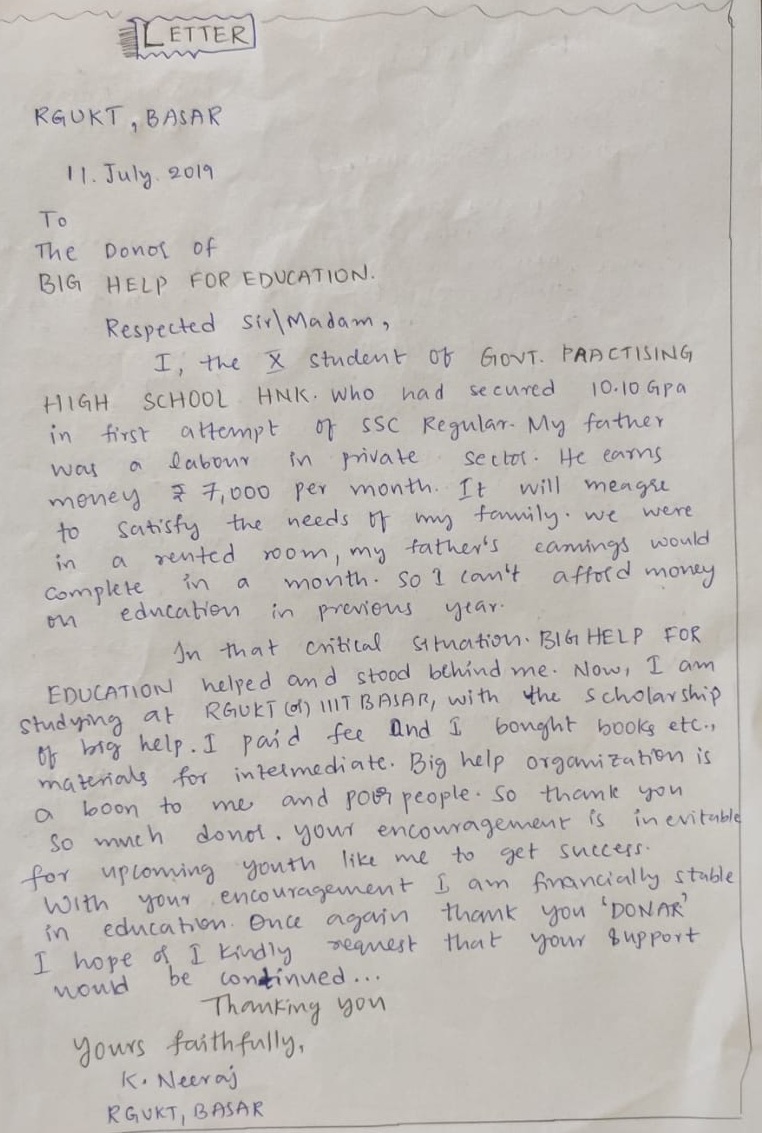 LETTER
RGUKT, BASAR
11. July. 2019
To
The Donor of
BIG HELP FOR EDUCATION.
Respected Sir\Madam,
I, the X student of GOVT. PRACTISING
HIGH SCHOOL HNK. who had secured 10.10 Gpa
in first attempt of SSC Regular. My father
was a labour in private sector. He earns
money ₹ 7,000 per month. It will meagre
to satisfy the needs of my family. we were
in a rented room, my father's earnings would
complete in a month. so I can't afford money
on education in previous year.
In that critical situation. BIG HELP FOR
EDUCATION helped and stood behind me. Now, I am
studying at RGUKT (or) IIIT BASAR, with the scholarship
of big help. I paid fee and I bought books etc.,
materials for intermediate. Big help organization is
a boon to me and poor people. so thank you
so much donor. your encouragement is inevitable
for upcoming youth like me to get success.
With your encouragement I am financially stable
in education. Once again thank you 'DONAR'
I hope or I kindly request that your support
would be continued...
Thanking you
yours faithfully,
K. Neeraj
RGUKT, BASAR